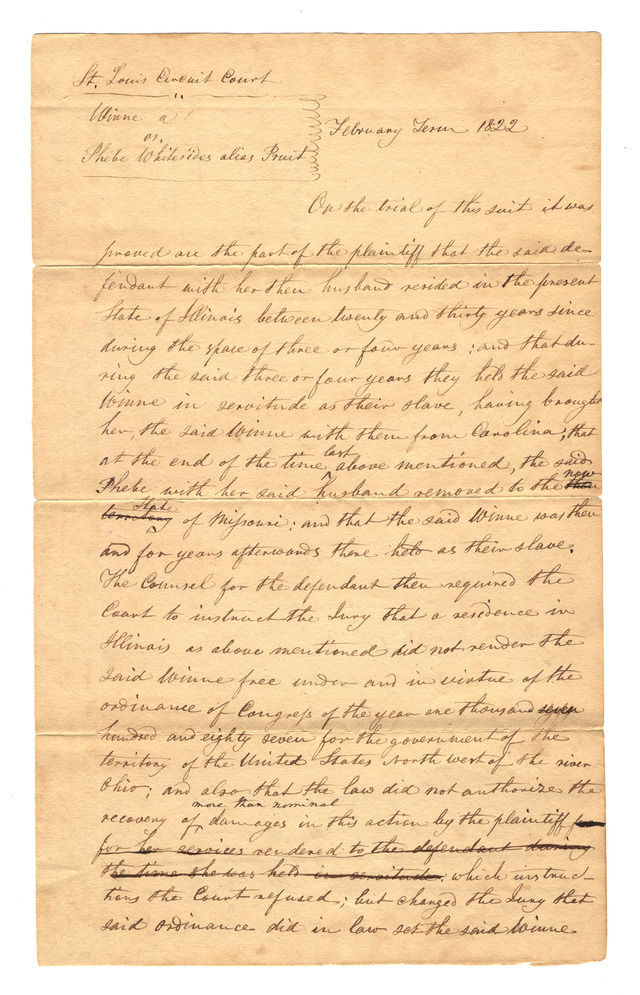 St. Louis Circuit Court
Winne a
vs.
Phebe Whitesides alias Pruit
February Term 1822
On the trial of this suit it was
proved on the part of the plaintiff that the said de-
fendant with her then husband resided in the present
State of Illinois between twenty and thirty years since
during the space of three or four years; and that du-
ring the said three or four years they held the said
Winne in servitude as their slave, having brought
her, the said Winne with them from Carolina; that
at the end of the time last above mentioned, the said
Phebe with her said husband removed to the then now
territory State of Missouri: and that the said Winne was then
and for years afterwards there held as their slave.
The Counsel for the defendant then required the
Court to instruct the Jury that a residence in
Illinois as above mentioned did not render the
said Winne free under and in virtue of the
ordinance of Congress of the year one thousand seven
hundred and eighty seven for the government of the
territory of the United States North west of the river
Ohio; and also that the law did not authorize the
recovery of more than nominal damages in this action by the plaintiff for
for her services rendered to the defendant during
the time she was held in servitude: which instruc-
tions the Court refused; but charged the Jury that
said ordinance did in law set the said Winne